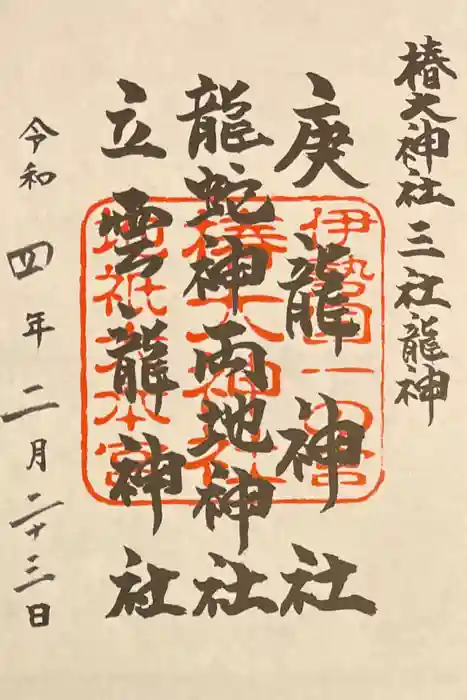 椿大神社三社龍神
庚龍神社
龍蛇神両地神社
立雲龍神社
令和四年二月二十三日
伊勢国一宮
椿大神社
地祇大本宮